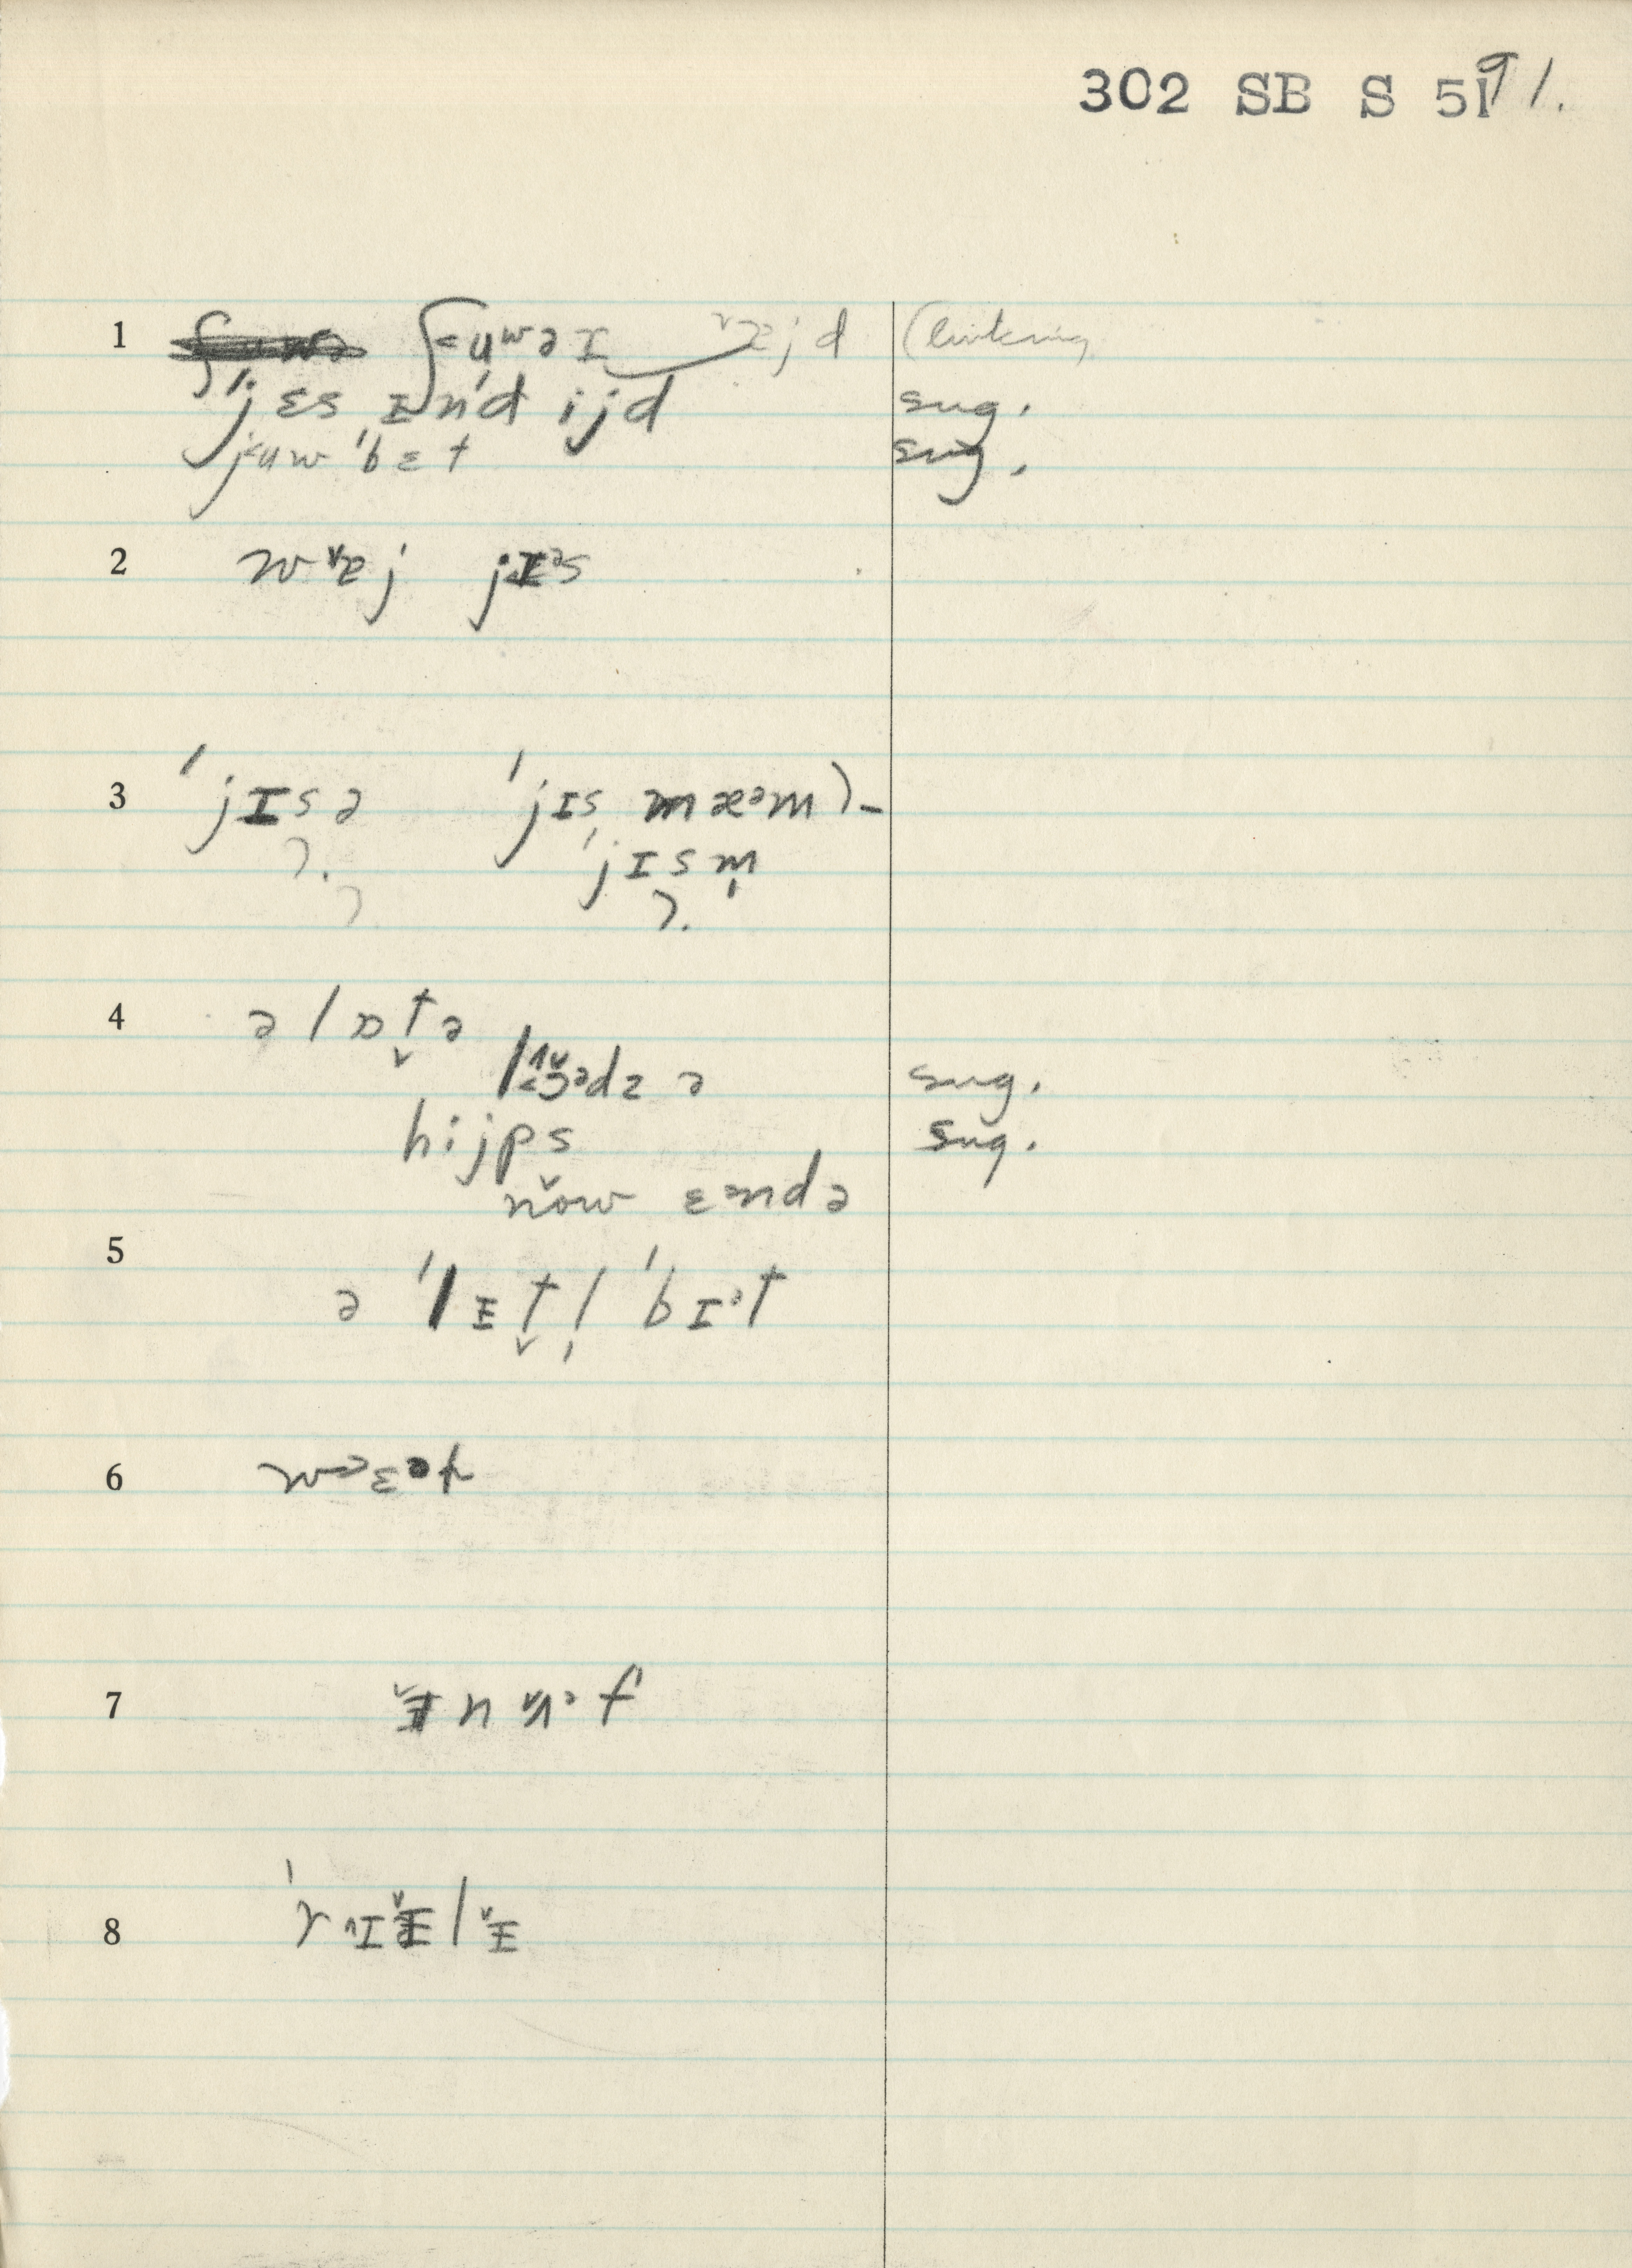 302 SB S 51 91.
1 ʃ˂uʷə ɪ ˅æjd (linking
ˈjɛs ᵻnˈd ijd sug.
j˂uw ˈbɛt sug.
2 w˅ɐj jɪᵊs
3 ˈjɪsə ˈjɪs, mæᵊm)-
?. ˈjɪsm̩
? ?.
4 ə lɒt̬ə
lɔᵊdz ə sug.
hijps sug.
now ɛᵊndə
5
ə ˈlᵻt̬l̩ ˈbɪᵊt
6
7 ᵻn ʌᵊf
8 ˈrɪᵻlᵻ